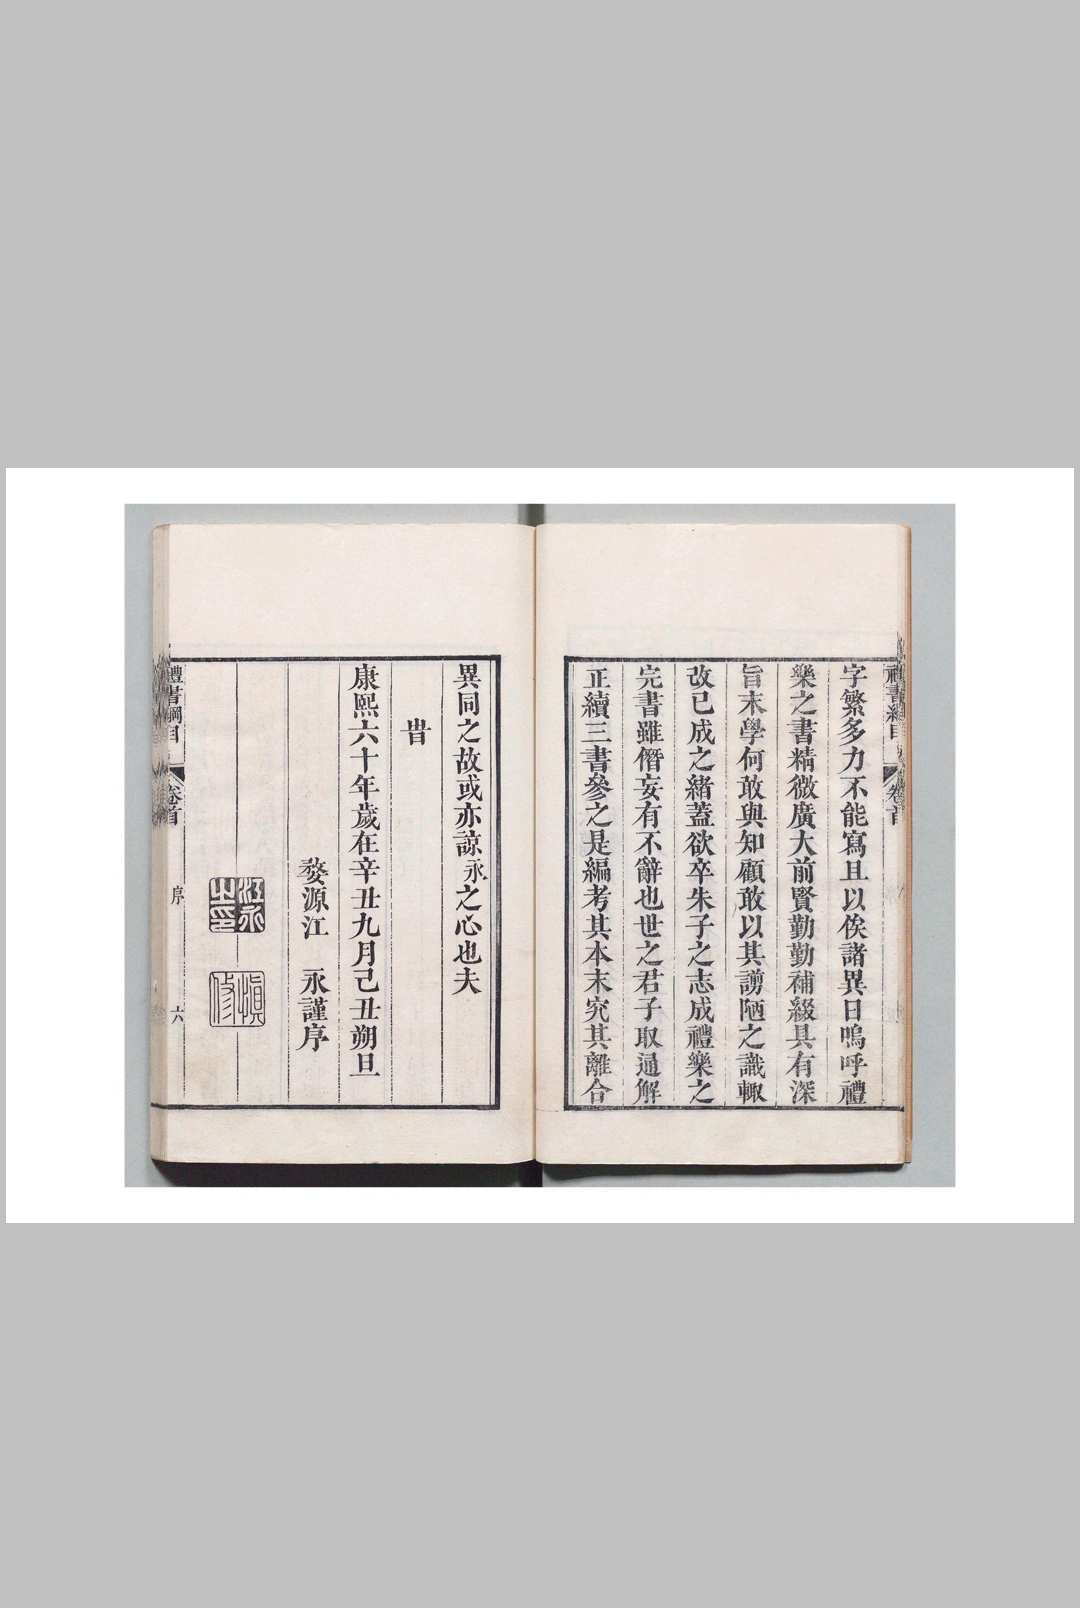 字繁多力不能寫且以俟諸異日嗚呼禮
樂之書精微廣大前賢勤勤補綴具有深
旨末學何敢與知顧敢以其謭陋之識輒
改已成之緒蓋欲卒朱子之志成禮樂之
完書雖僭妄有不辭也世之君子取通解
正續三書參之是編考其本末究其離合
異同之故或亦諒永之心也夫
旹
康熙六十年歲在辛丑九月己丑朔旦
婺源江 永謹序
江永之印
慎修
禮書綱目 卷首 序 六